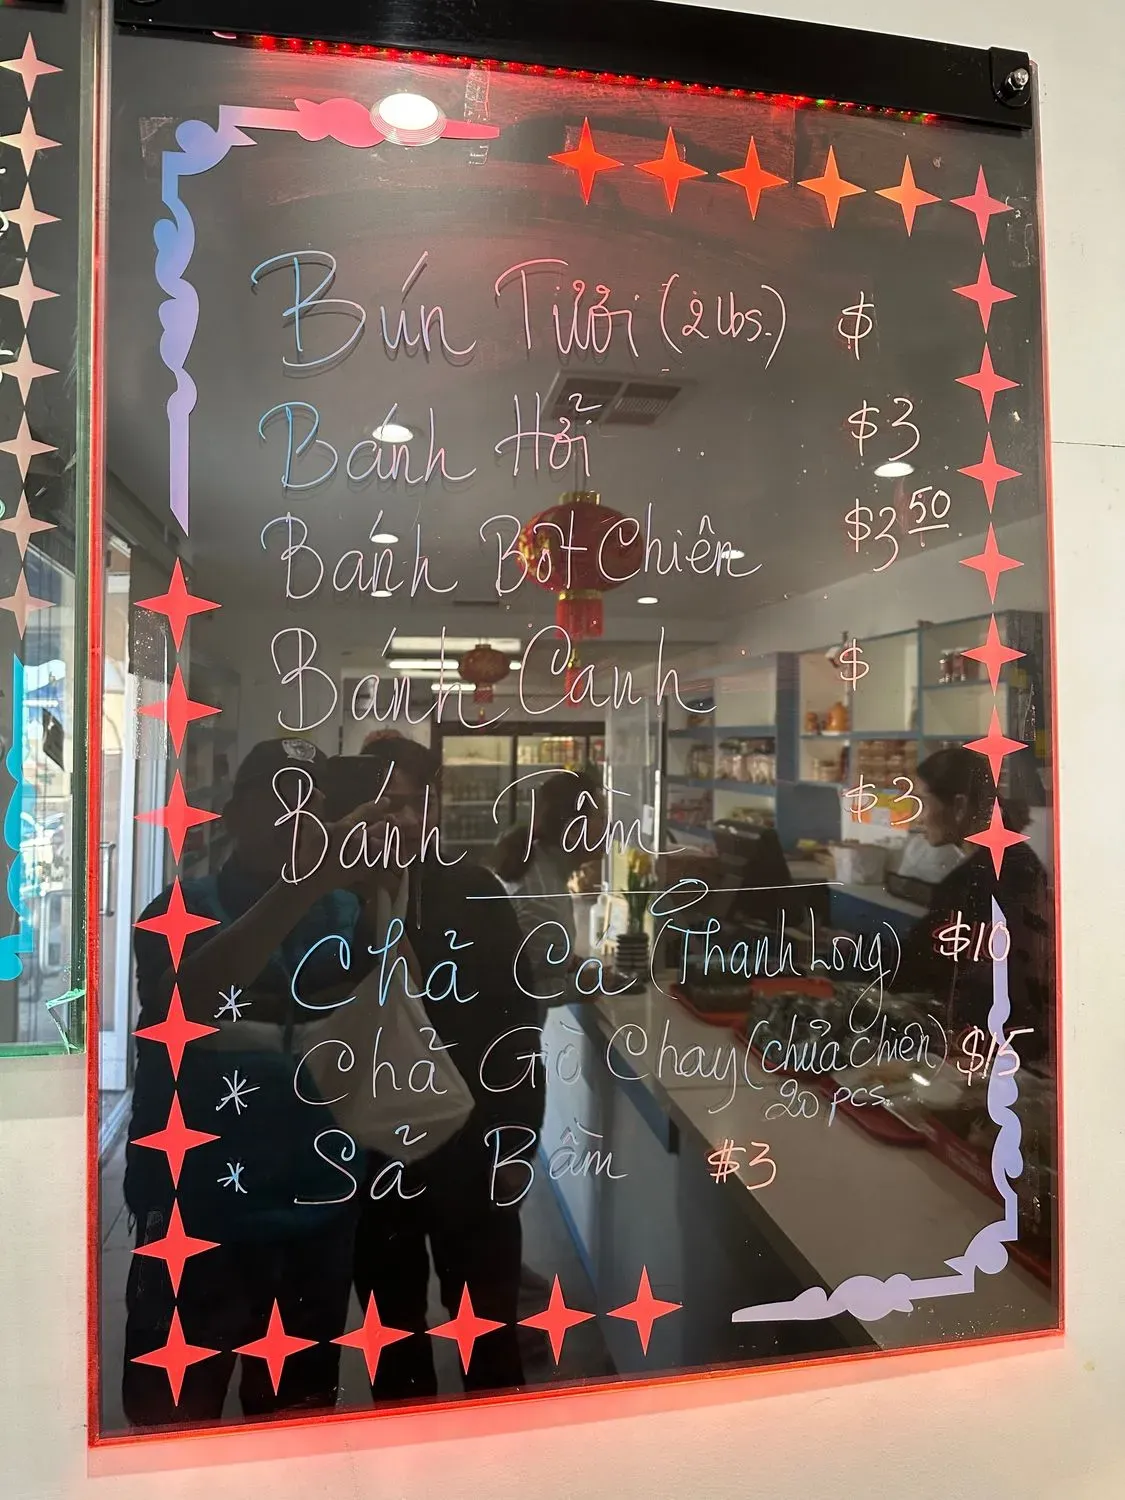 Bún Tươi (2 lbs.) $
Bánh Hỏi $3
Bánh Bột Chiên $3 50
Bánh Canh $
Bánh Tầm $3
* Chả Cá (Thanh Long) $10
* Chả Giò Chay (chưa chiên) $15
20 pcs.
* Sả Bằm $3